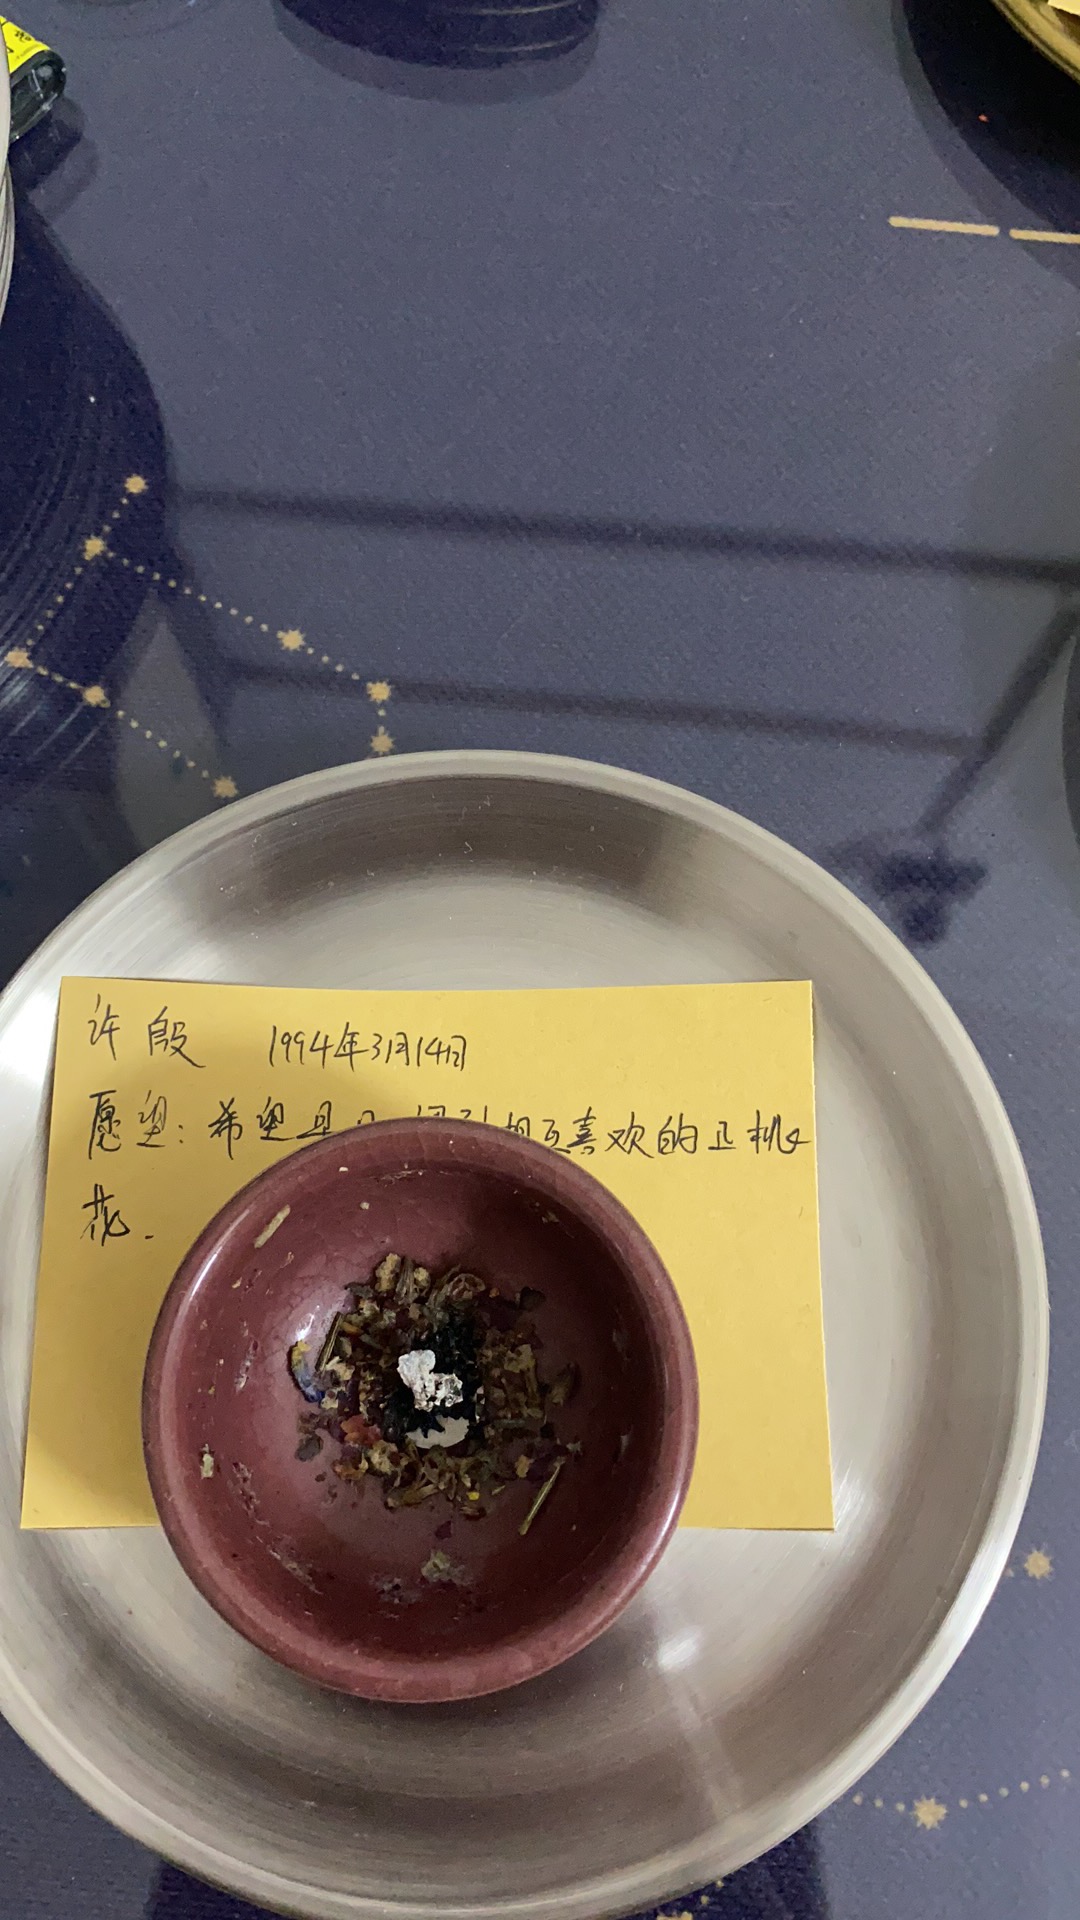 许殷 1994年3月14日
愿望：希望早日 相互喜欢的正桃
花.